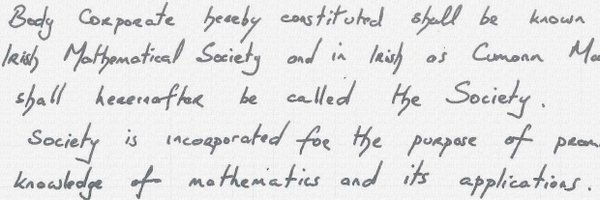 Body Corporate hereby constituted shall be known
Irish Mathematical Society and in Irish as Cumann
shall hereinafter be called the Society.
Society is incorporated for the purpose of
knowledge of mathematics and its applications.